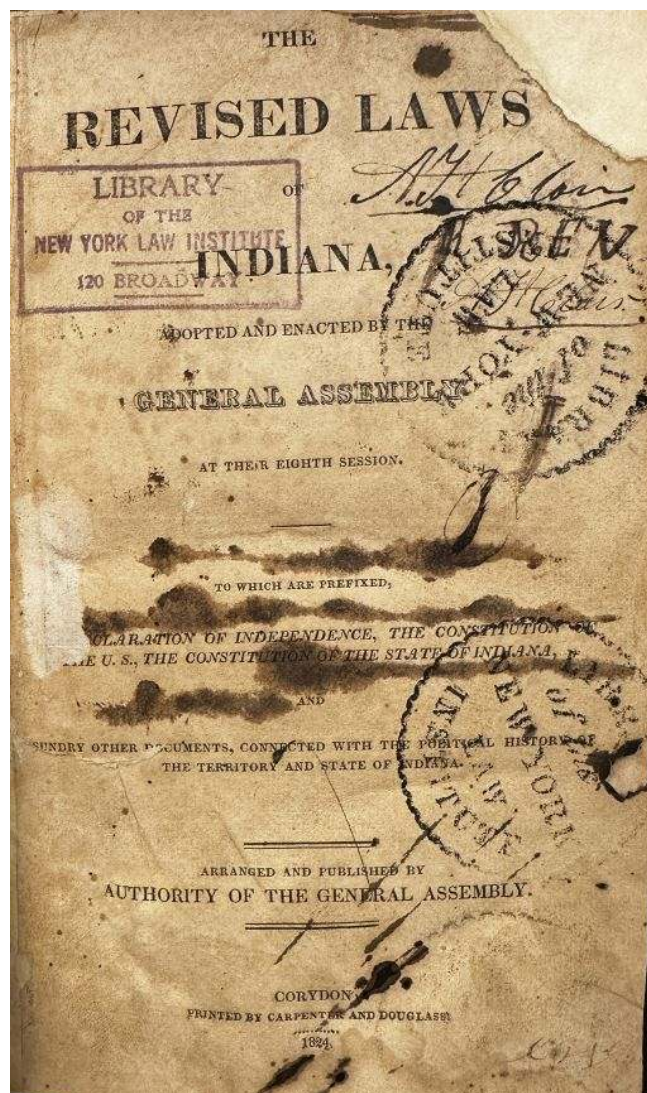 THE
REVISED LAWS
LIBRARY
OF THE
NEW YORK LAW INSTITUTE
120 BROADWAY
OF
REV
INDIANA,
ADOPTED AND ENACTED BY THE
GENERAL ASSEMBLY
AT THEIR EIGHTH SESSION.
TO WHICH ARE PREFIXED,
DECLARATION OF INDEPENDENCE, THE CONSTITUTION OF
THE U. S., THE CONSTITUTION OF THE STATE OF INDIANA,
AND
SUNDRY OTHER DOCUMENTS, CONNECTED WITH THE POLITICAL HISTORY OF
THE TERRITORY AND STATE OF INDIANA.
ARRANGED AND PUBLISHED BY
AUTHORITY OF THE GENERAL ASSEMBLY.
CORYDON,
PRINTED BY CARPENTER AND DOUGLASS.
1824.
LIBRARY
of the
NEW YORK
LAW
INSTITUTE